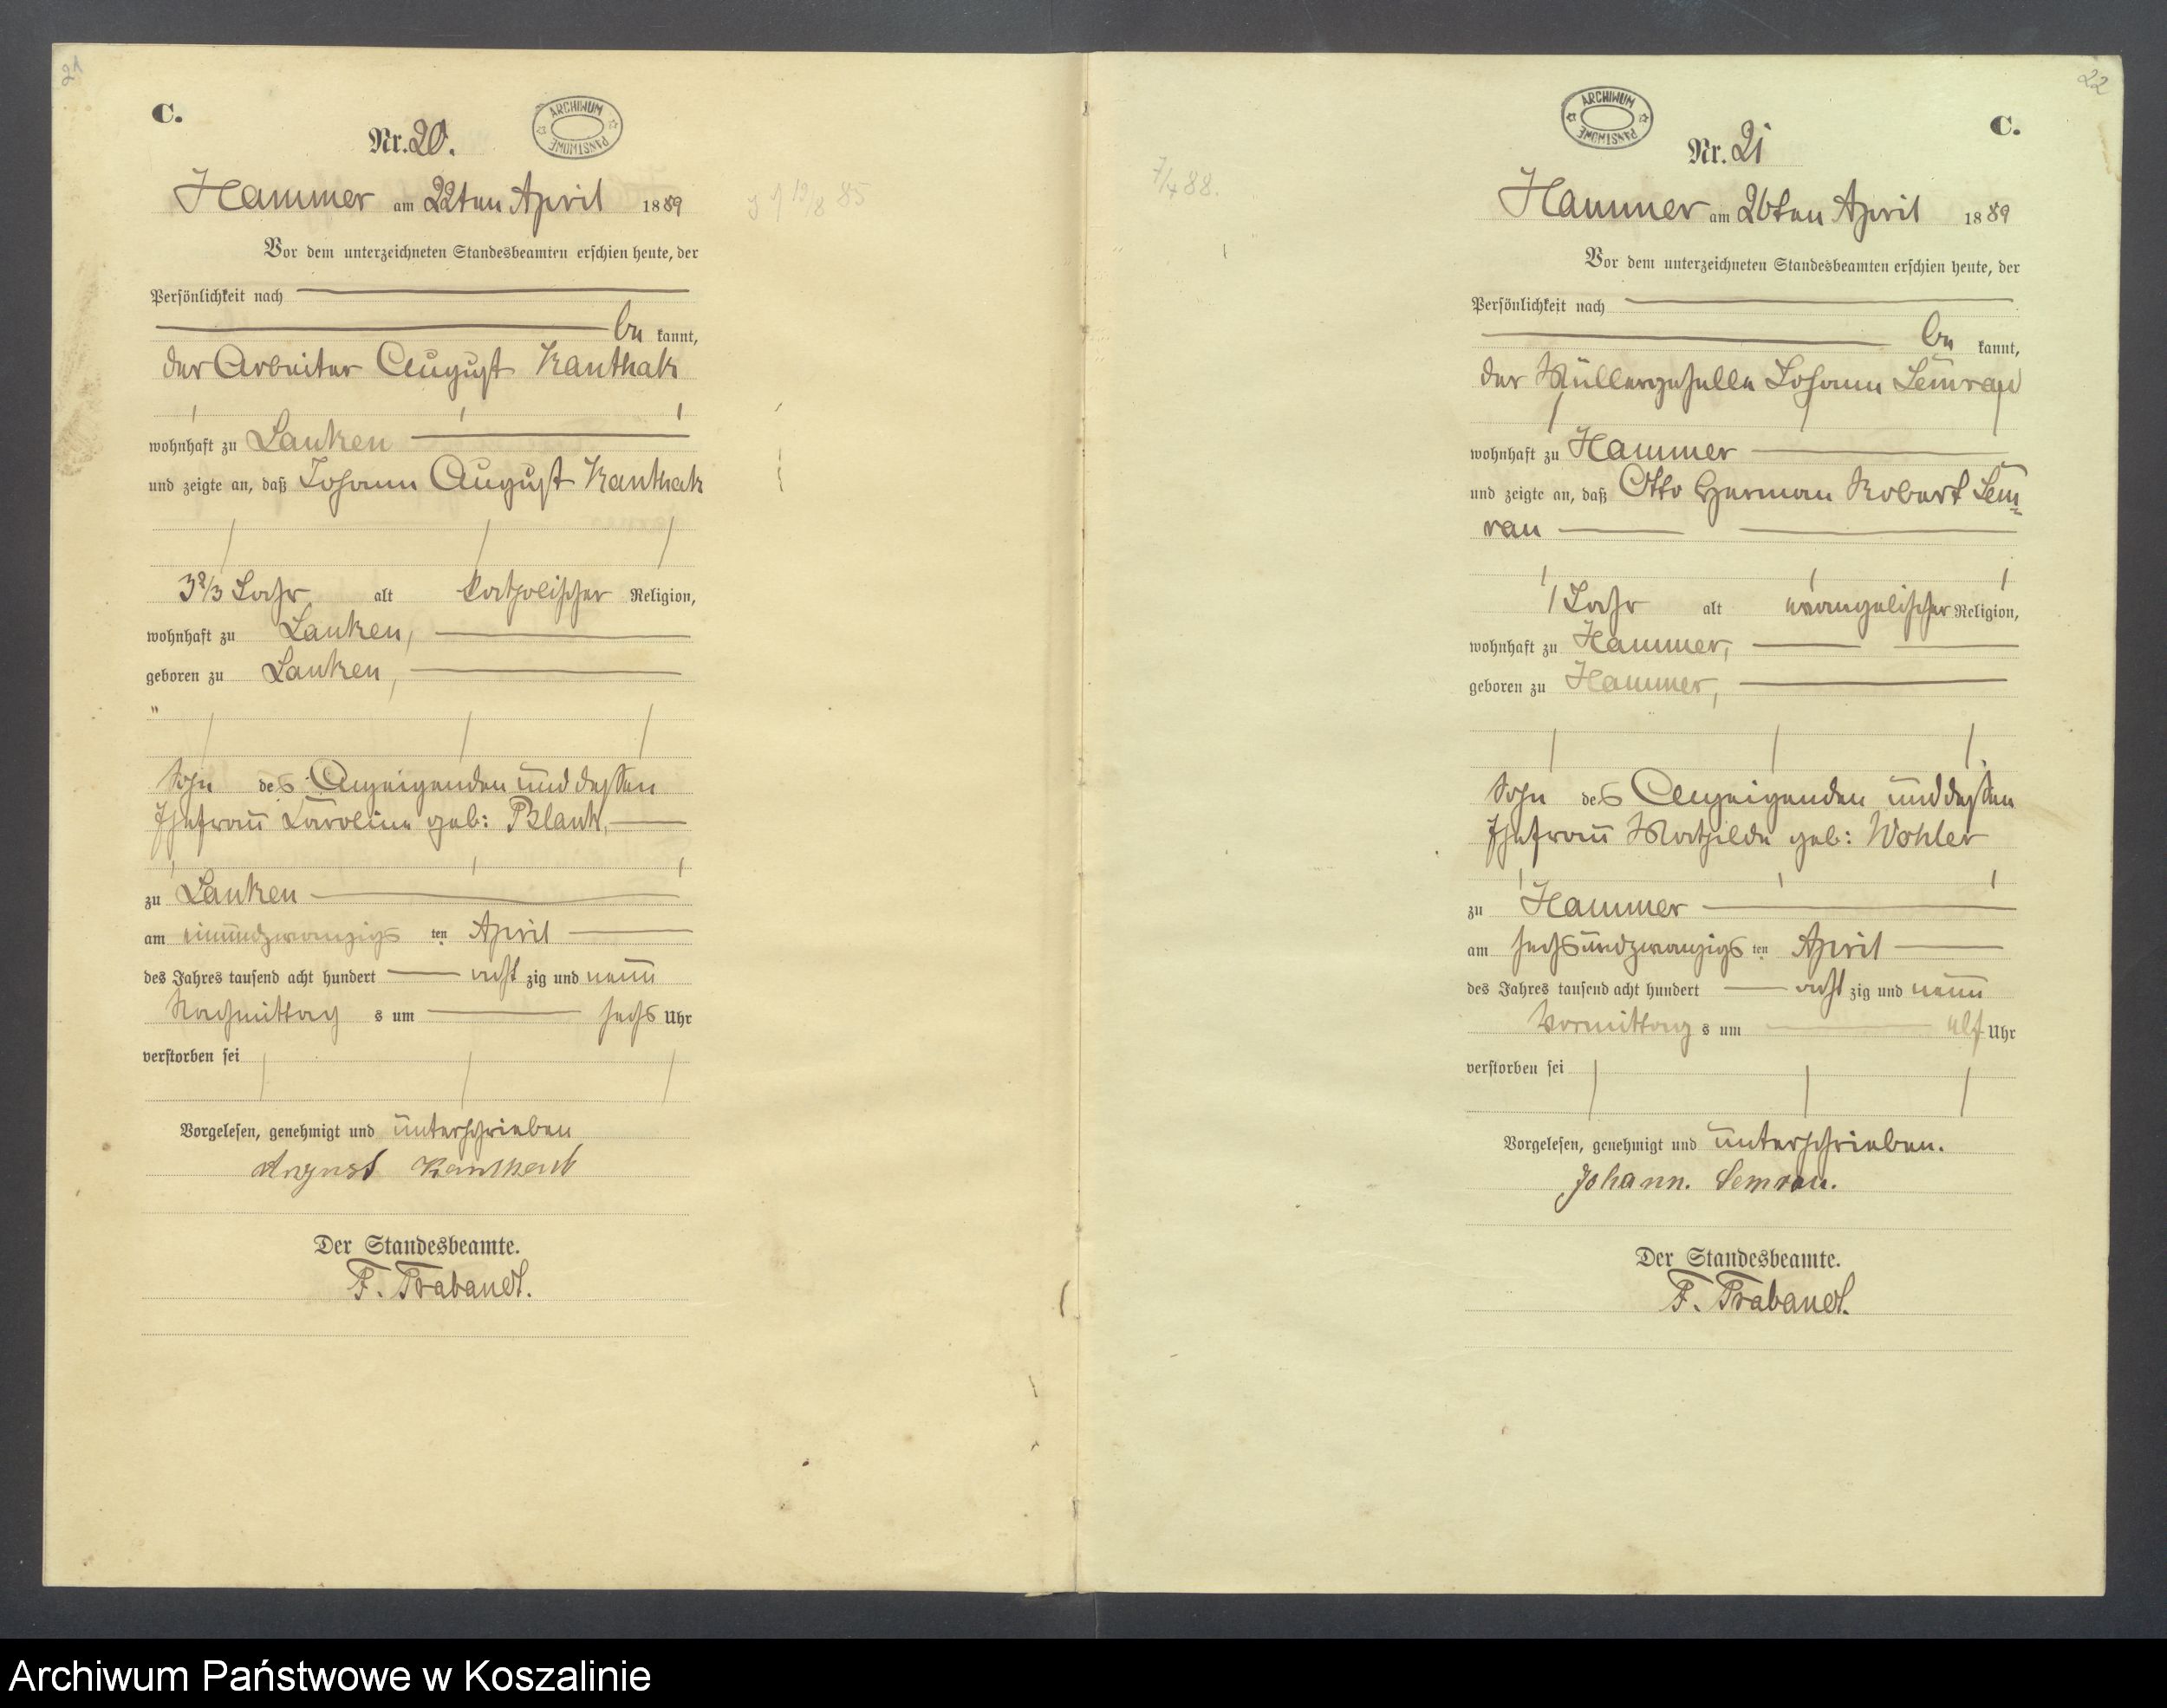 21
C.
ARCHIWUM PAŃSTWOWE
Nr. 20.
Hammer am 22ten April 1889
Vor dem unterzeichneten Standesbeamten erschien heute, der
Persönlichkeit nach
be kannt,
der Arbeiter August Kanthak
wohnhaft zu Lanken
und zeigte an, daß Johann August Kanthak
3 2/3 Jahr alt katholischer Religion,
wohnhaft zu Lanken,
geboren zu Lanken,
"
Sohn des Anzeigenden und dessen
Ehefrau Karoline geb: Blank,
zu Lanken
am einundzwanzigs ten April
des Jahres tausend acht hundert acht zig und neun
Nachmittag s um sechs Uhr
verstorben sei
Vorgelesen, genehmigt und unterschrieben
August Kanthak
Der Standesbeamte.
F. Trabandt.
12/8 85
7/4 88.
22
C.
ARCHIWUM PAŃSTWOWE
Nr. 21
Hammer am 26ten April 1889
Vor dem unterzeichneten Standesbeamten erschien heute, der
Persönlichkeit nach
be kannt,
der Müllergeselle Johann Semrau
wohnhaft zu Hammer
und zeigte an, daß Otto Herman Robert Sem=
rau
1 Jahr alt evangelischer Religion,
wohnhaft zu Hammer,
geboren zu Hammer,
Sohn des Anzeigenden und dessen
Ehefrau Mathilde geb: Wohler
zu Hammer
am sechsundzwanzigs ten April
des Jahres tausend acht hundert acht zig und neun
Vormittag s um elf Uhr
verstorben sei
Vorgelesen, genehmigt und unterschrieben.
Johann. Semrau.
Der Standesbeamte.
F. Trabandt.
Archiwum Państwowe w Koszalinie